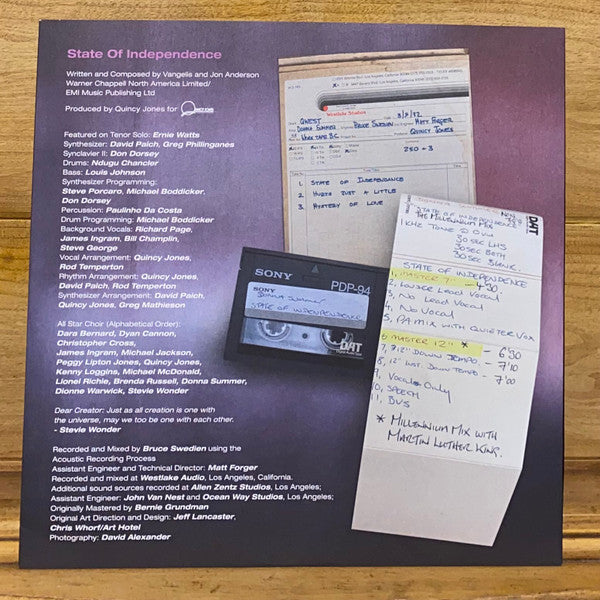 State Of Independence
Written and Composed by Vangelis and Jon Anderson
Warner Chappell North America Limited/
EMI Music Publishing Ltd
Produced by Quincy Jones for
Featured on Tenor Solo: Ernie Watts
Synthesizer: David Paich, Greg Phillinganes
Synclavier II: Don Dorsey
Drums: Ndugu Chancler
Bass: Louis Johnson
Synthesizer Programming:
Steve Porcaro, Michael Boddicker,
Don Dorsey
Percussion: Paulinho Da Costa
Drum Programming: Michael Boddicker
Background Vocals: Richard Page,
James Ingram, Bill Champlin,
Steve George
Vocal Arrangement: Quincy Jones,
Rod Temperton
Rhythm Arrangement: Quincy Jones,
David Paich, Rod Temperton
Synthesizer Arrangement: David Paich,
Quincy Jones, Greg Mathieson
All Star Choir (Alphabetical Order):
Dara Bernard, Dyan Cannon,
Christopher Cross,
James Ingram, Michael Jackson,
Peggy Lipton Jones, Quincy Jones,
Kenny Loggins, Michael McDonald,
Lionel Richie, Brenda Russell, Donna Summer,
Dionne Warwick, Stevie Wonder
Dear Creator: Just as all creation is one with
the universe, may we too be one with each other.
- Stevie Wonder
Recorded and Mixed by Bruce Swedien using the
Acoustic Recording Process
Assistant Engineer and Technical Director: Matt Forger
Recorded and mixed at Westlake Audio, Los Angeles, California.
Additional sound sources recorded at Allen Zentz Studios, Los Angeles;
Assistant Engineer: John Van Nest and Ocean Way Studios, Los Angeles;
Originally Mastered by Bernie Grundman
Original Art Direction and Design: Jeff Lancaster,
Chris Whorf/Art Hotel
Photography: David Alexander
Westlake Studios
QWEST
3/8/82
DONNA SUMMER
BRUCE SWEDIEN
MATT FORGER
QUINCY JONES
250 + 3
1. STATE OF INDEPENDANCE
2. HURTS JUST A LITTLE
3. MYSTERY OF LOVE
SONY
PDP-94
SONY
DONNA SUMMER
STATE OF INDEPENDENCE
DAT
Digital Audio Tape
DAT
STATE OF INDEPENDENCE
THE MILLENNIUM MIX
1 KHZ TONE @ OVU
30 SEC LHS
30 SEC BOTH
30 SEC BLANK.
STATE OF INDEPENDENCE
1, MASTER 7" - 4.30
2, LOUDER LEAD VOCAL
3, NO LEAD VOCAL
4, NO VOCAL
5, PA MIX WITH QUIETER VOX
6 MASTER 12" * - 6'30
7, 7/12" DOWN TEMPO - 7'10
8, 12" INST DOWN TEMPO - 7'00
9, VOCALS ONLY
10, SPEECH
11, BV'S
* MILLENNIUM MIX WITH
MARTIN LUTHER KING.